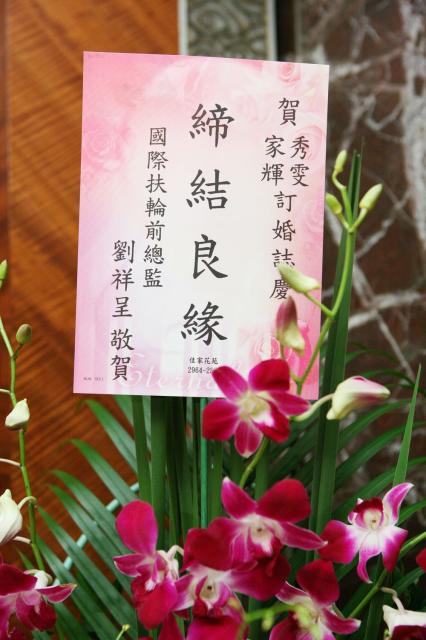 賀
秀雯
家輝
訂婚誌慶
締結良緣
國際扶輪前總監
劉祥呈 敬賀
佳家花苑